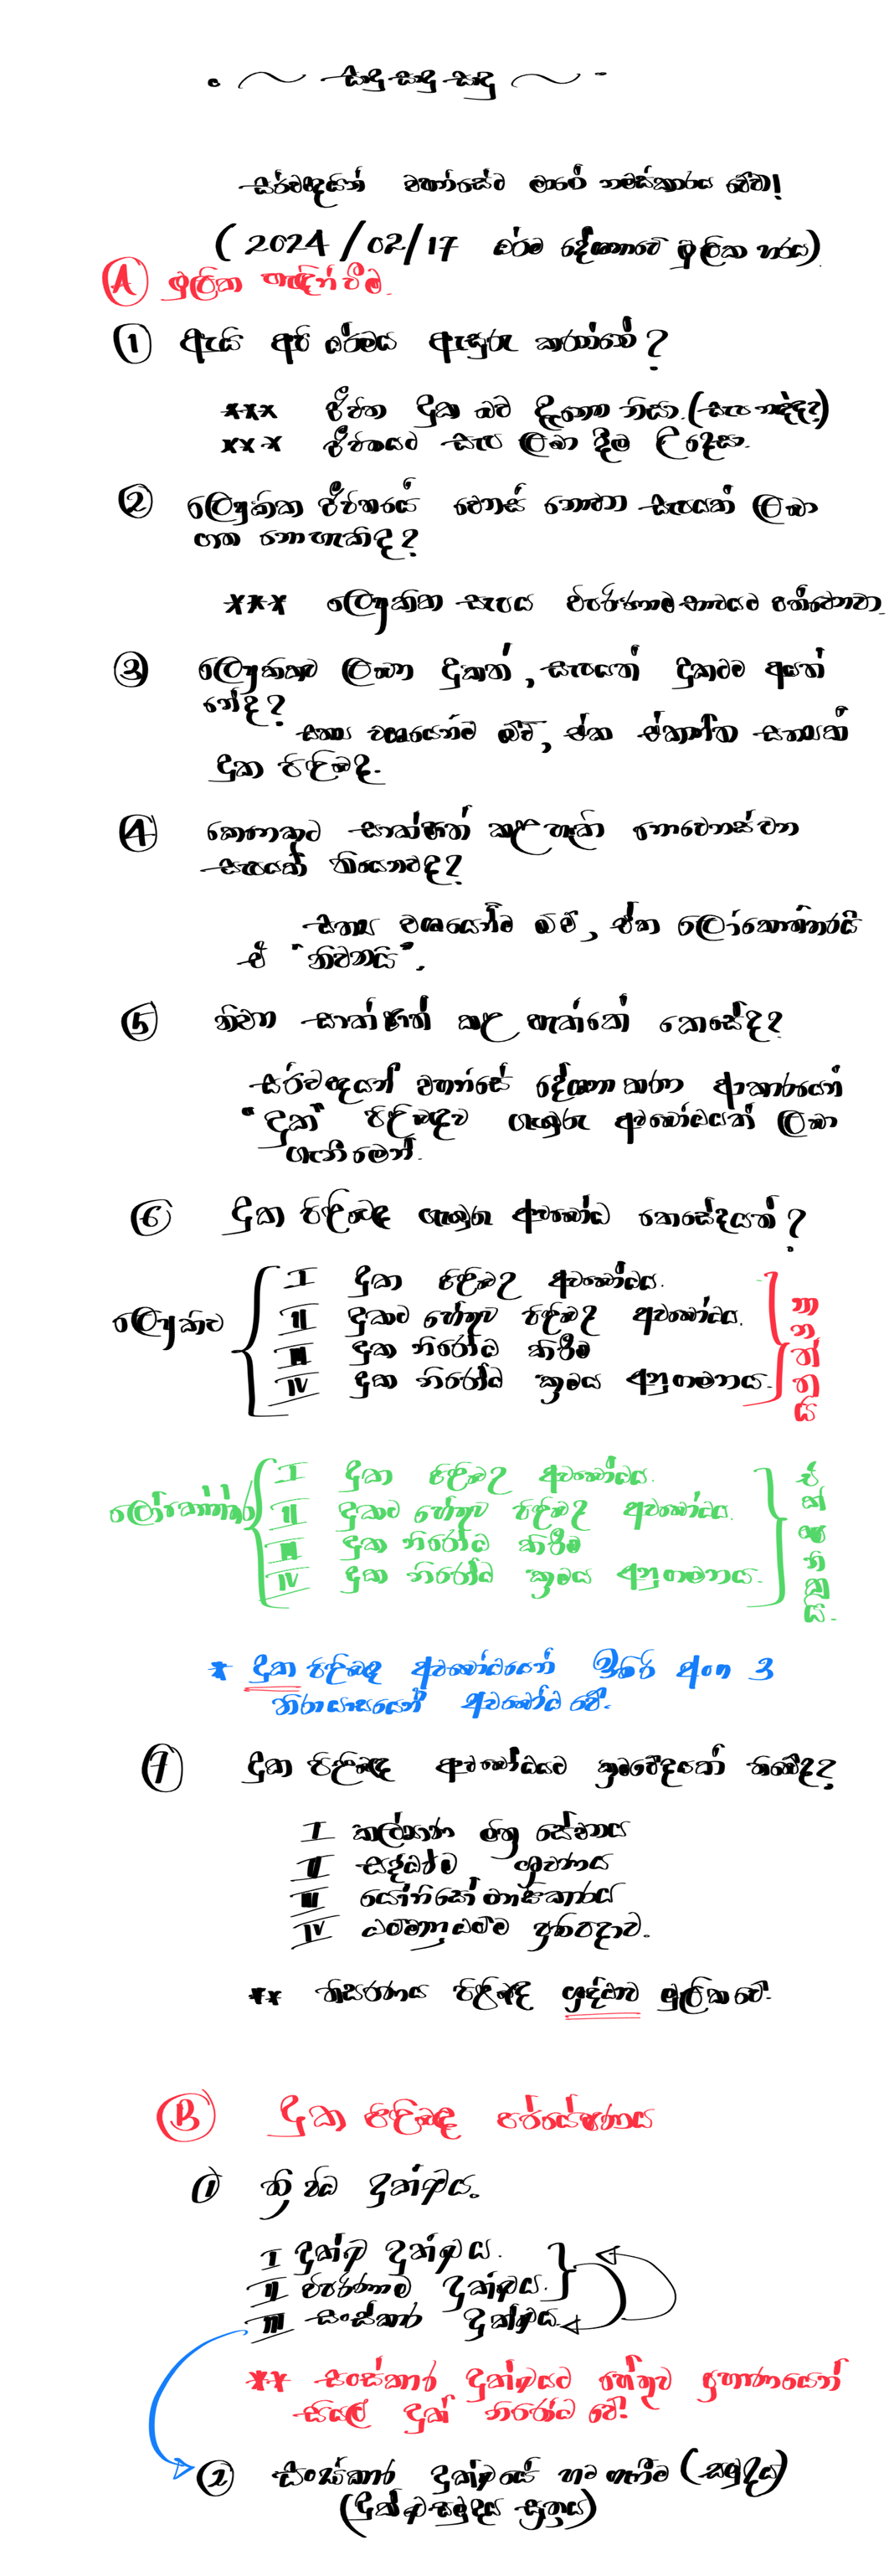 සාදු සාදු සාදු
සර්වඥයන් වහන්සේට මාගේ නමස්කාරය වේවා!
(2024/02/17 ධර්ම දේශනාවේ මූලික හරය)
A මූලික හැඳින්වීම.
1 ඇයි අපි ධර්මය ඇසුරු කරන්නේ?
*** ජීවිත දුක බව දැනෙන නිසා. (සැප නැද්ද?)
*** ජීවිතයට සැප ලබා දීම උදෙසා.
2 ලෞකික ජීවිතයේ වෙනස් නොවන සැපයක් ලබා
ගත නොහැකිද?
*** ලෞකික සැපය විපරිණාම භාවයට පත්වෙනවා.
3 ලෞකිකව ලබන දුකත්, සැපයත් දුකටම අයත්
නේද?
සත්‍ය වශයෙන්ම ඔව්, ඒක ඒකාන්ත සත්‍යකි
දුක පිළිබඳ.
4 කෙනාකුට සාක්ෂාත් කළ හැකි නොවෙනස් වන
සැපයක් තියෙනවද?
සත්‍ය වශයෙන්ම ඔව්, ඒක ලෝකෝත්තරයි
ඒ "නිවනයි".
5 නිවන සාක්ෂාත් කළ හැක්කේ කෙසේද?
සර්වඥයන් වහන්සේ දේශනා කරන ආකාරයෙන්
"දුක" පිළිබඳව ගැඹුරු අවබෝධයක් ලබා
ගැනීමෙන්.
6 දුක පිළිබඳ ගැඹුරු අවබෝධ කෙසේදයත්?
I දුක පිළිබඳ අවබෝධය.
ලෞකිව II දුකට හේතුව පිළිබඳ අවබෝධය.
III දුක නිරෝධ කිරීම
IV දුක නිරෝධ ක්‍රමය අනුගමනය.
තාත්තයි
I දුක පිළිබඳ අවබෝධය.
ලෝකෝත්තර II දුකට හේතුව පිළිබඳ අවබෝධය.
III දුක නිරෝධ කිරීම
IV දුක නිරෝධ ක්‍රමය අනුගමනය.
* දුක පිළිබඳ අවබෝධයෙන් ඉතිරි අංග 3
නිරායාසයෙන් අවබෝධ වේ.
7 දුක පිළිබඳ අවබෝධයට ක්‍රමවේදයක් තිබේද?
I කල්‍යාණ මිත්‍ර සේවනය
II සද්ධර්ම ශ්‍රවණය
III යෝනිසෝ මනසිකාරය
IV ධම්මානුධම්ම ප්‍රතිපදාව.
** තිසරණය පිළිබඳ ශ්‍රද්ධාව මූලික වේ.
B දුක පිළිබඳ පර්යේෂණය
1 ත්‍රිවිධ දුක්ඛය.
I දුක්ඛ දුක්ඛය.
II විපරිණාම දුක්ඛය.
III සංස්කාර දුක්ඛය.
** සංස්කාර දුක්ඛයට හේතුව ප්‍රහාණයෙන්
සියලු දුක් නිරෝධ වේ!
2 සංස්කාර දුක්ඛයේ හට ගැනීම (සමුදය)
(දුක්ඛසමුදය සූත්‍රය)